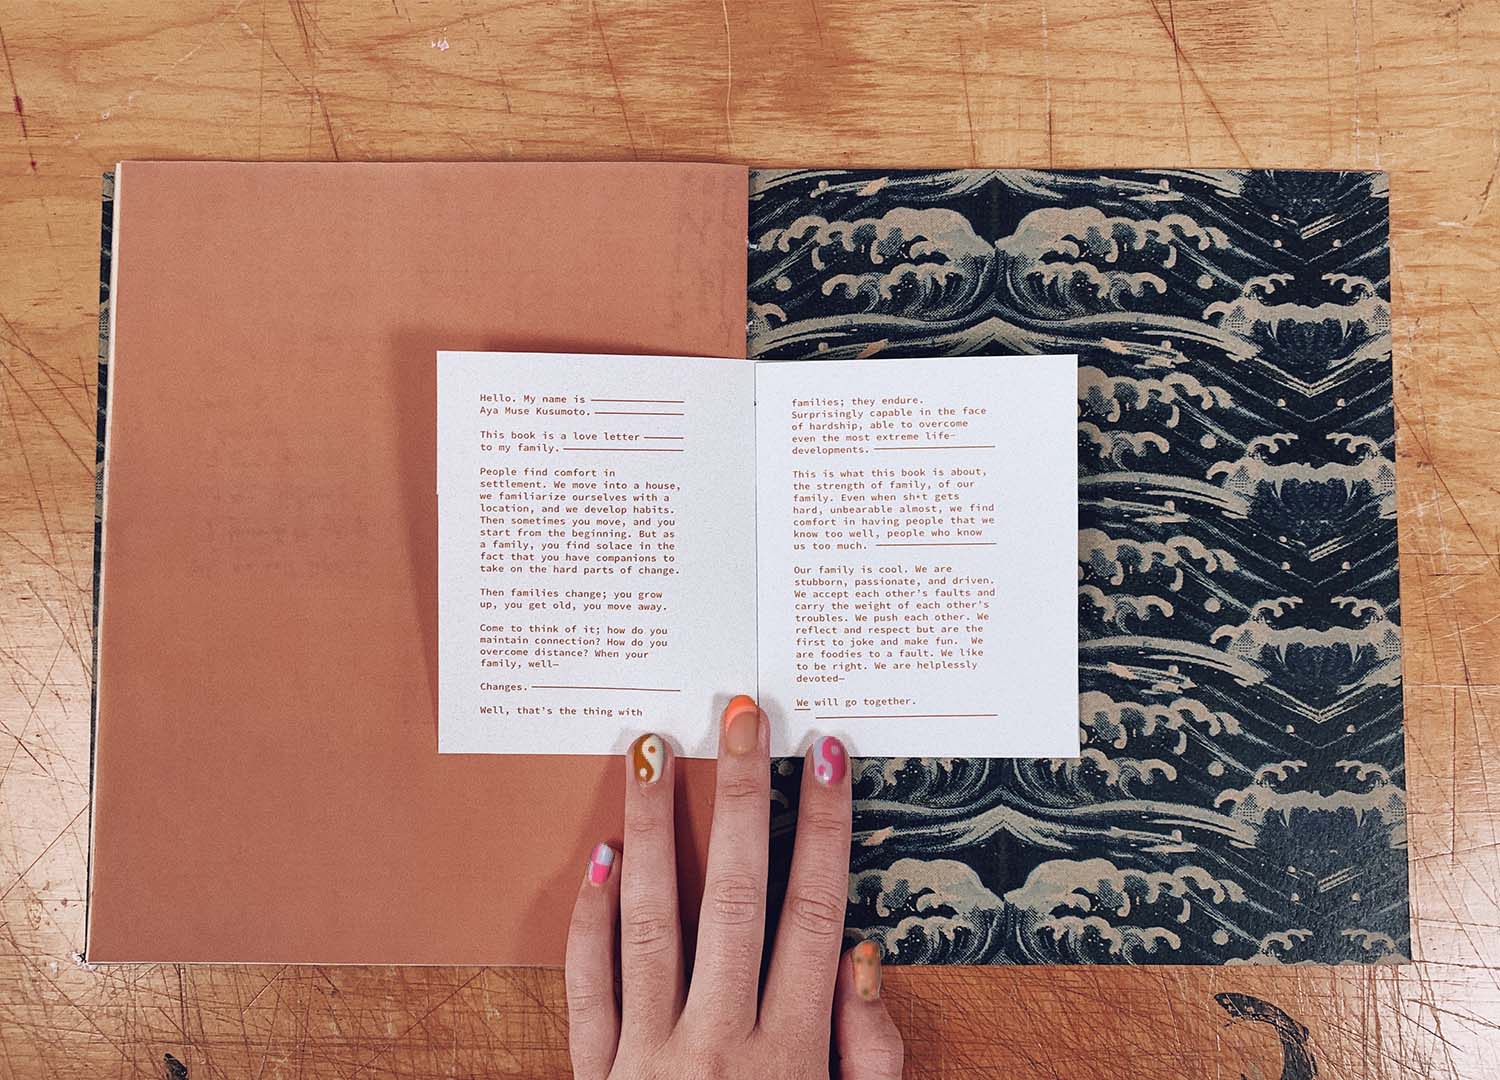 Hello. My name is
Aya Muse Kusumoto.
This book is a love letter
to my family.
People find comfort in
settlement. We move into a house,
we familiarize ourselves with a
location, and we develop habits.
Then sometimes you move, and you
start from the beginning. But as
a family, you find solace in the
fact that you have companions to
take on the hard parts of change.
Then families change; you grow
up, you get old, you move away.
Come to think of it; how do you
maintain connection? How do you
overcome distance? When your
family, well—
Changes.
Well, that's the thing with
families; they endure.
Surprisingly capable in the face
of hardship, able to overcome
even the most extreme life-
developments.
This is what this book is about,
the strength of family, of our
family. Even when sh*t gets
hard, unbearable almost, we find
comfort in having people that we
know too well, people who know
us too much.
Our family is cool. We are
stubborn, passionate, and driven.
We accept each other's faults and
carry the weight of each other's
troubles. We push each other. We
reflect and respect but are the
first to joke and make fun.  We
are foodies to a fault. We like
to be right. We are helplessly
devoted—
We will go together.